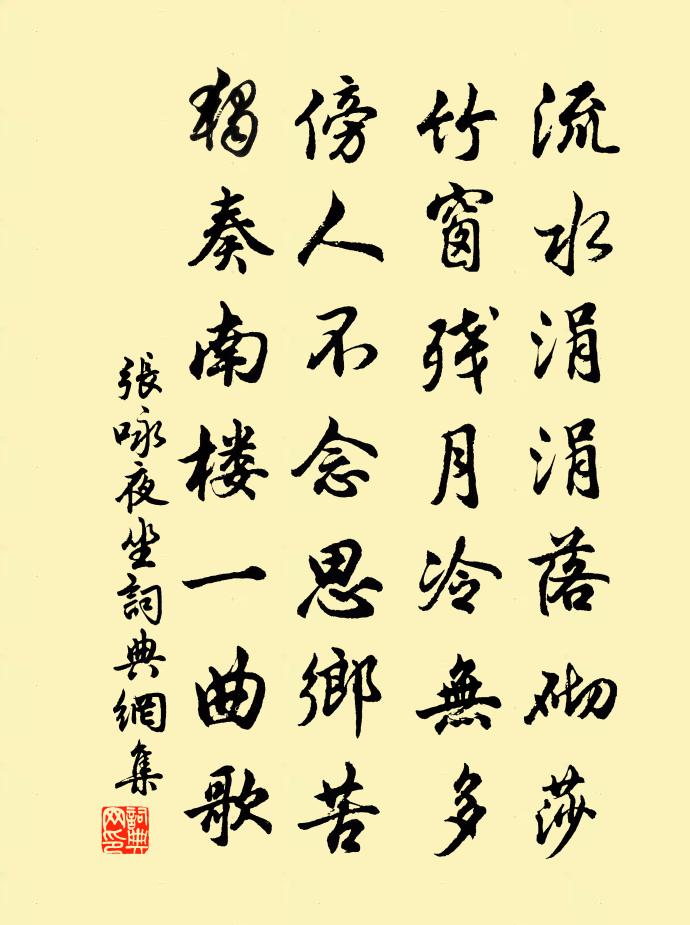 流水涓涓落砌莎
竹窗残月冷無多
傍人不念思鄉苦
獨奏南楼一曲歌
張咏夜坐詞典網集
詞典網印